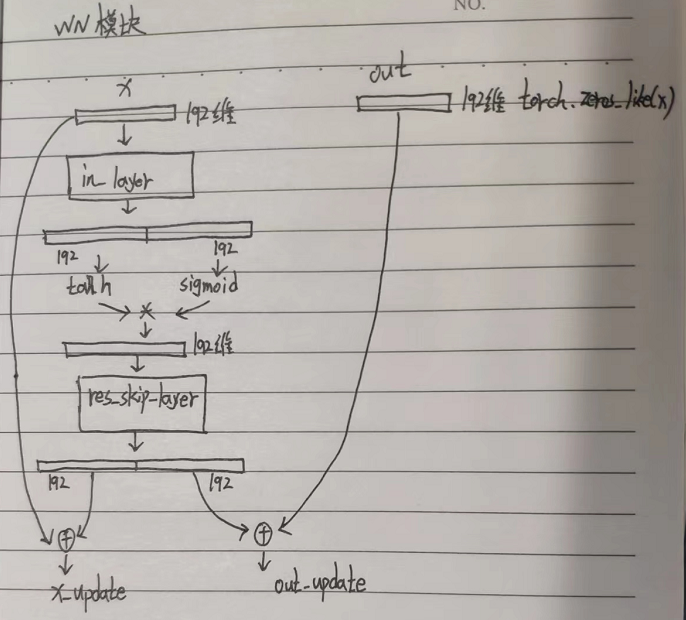 NO.
WN 模块
x
out
192维
192维 torch.zeros_like(x)
in_layer
192
192
tanh
sigmoid
*
192维
res_skip_layer
192
192
+
+
x_update
out_update